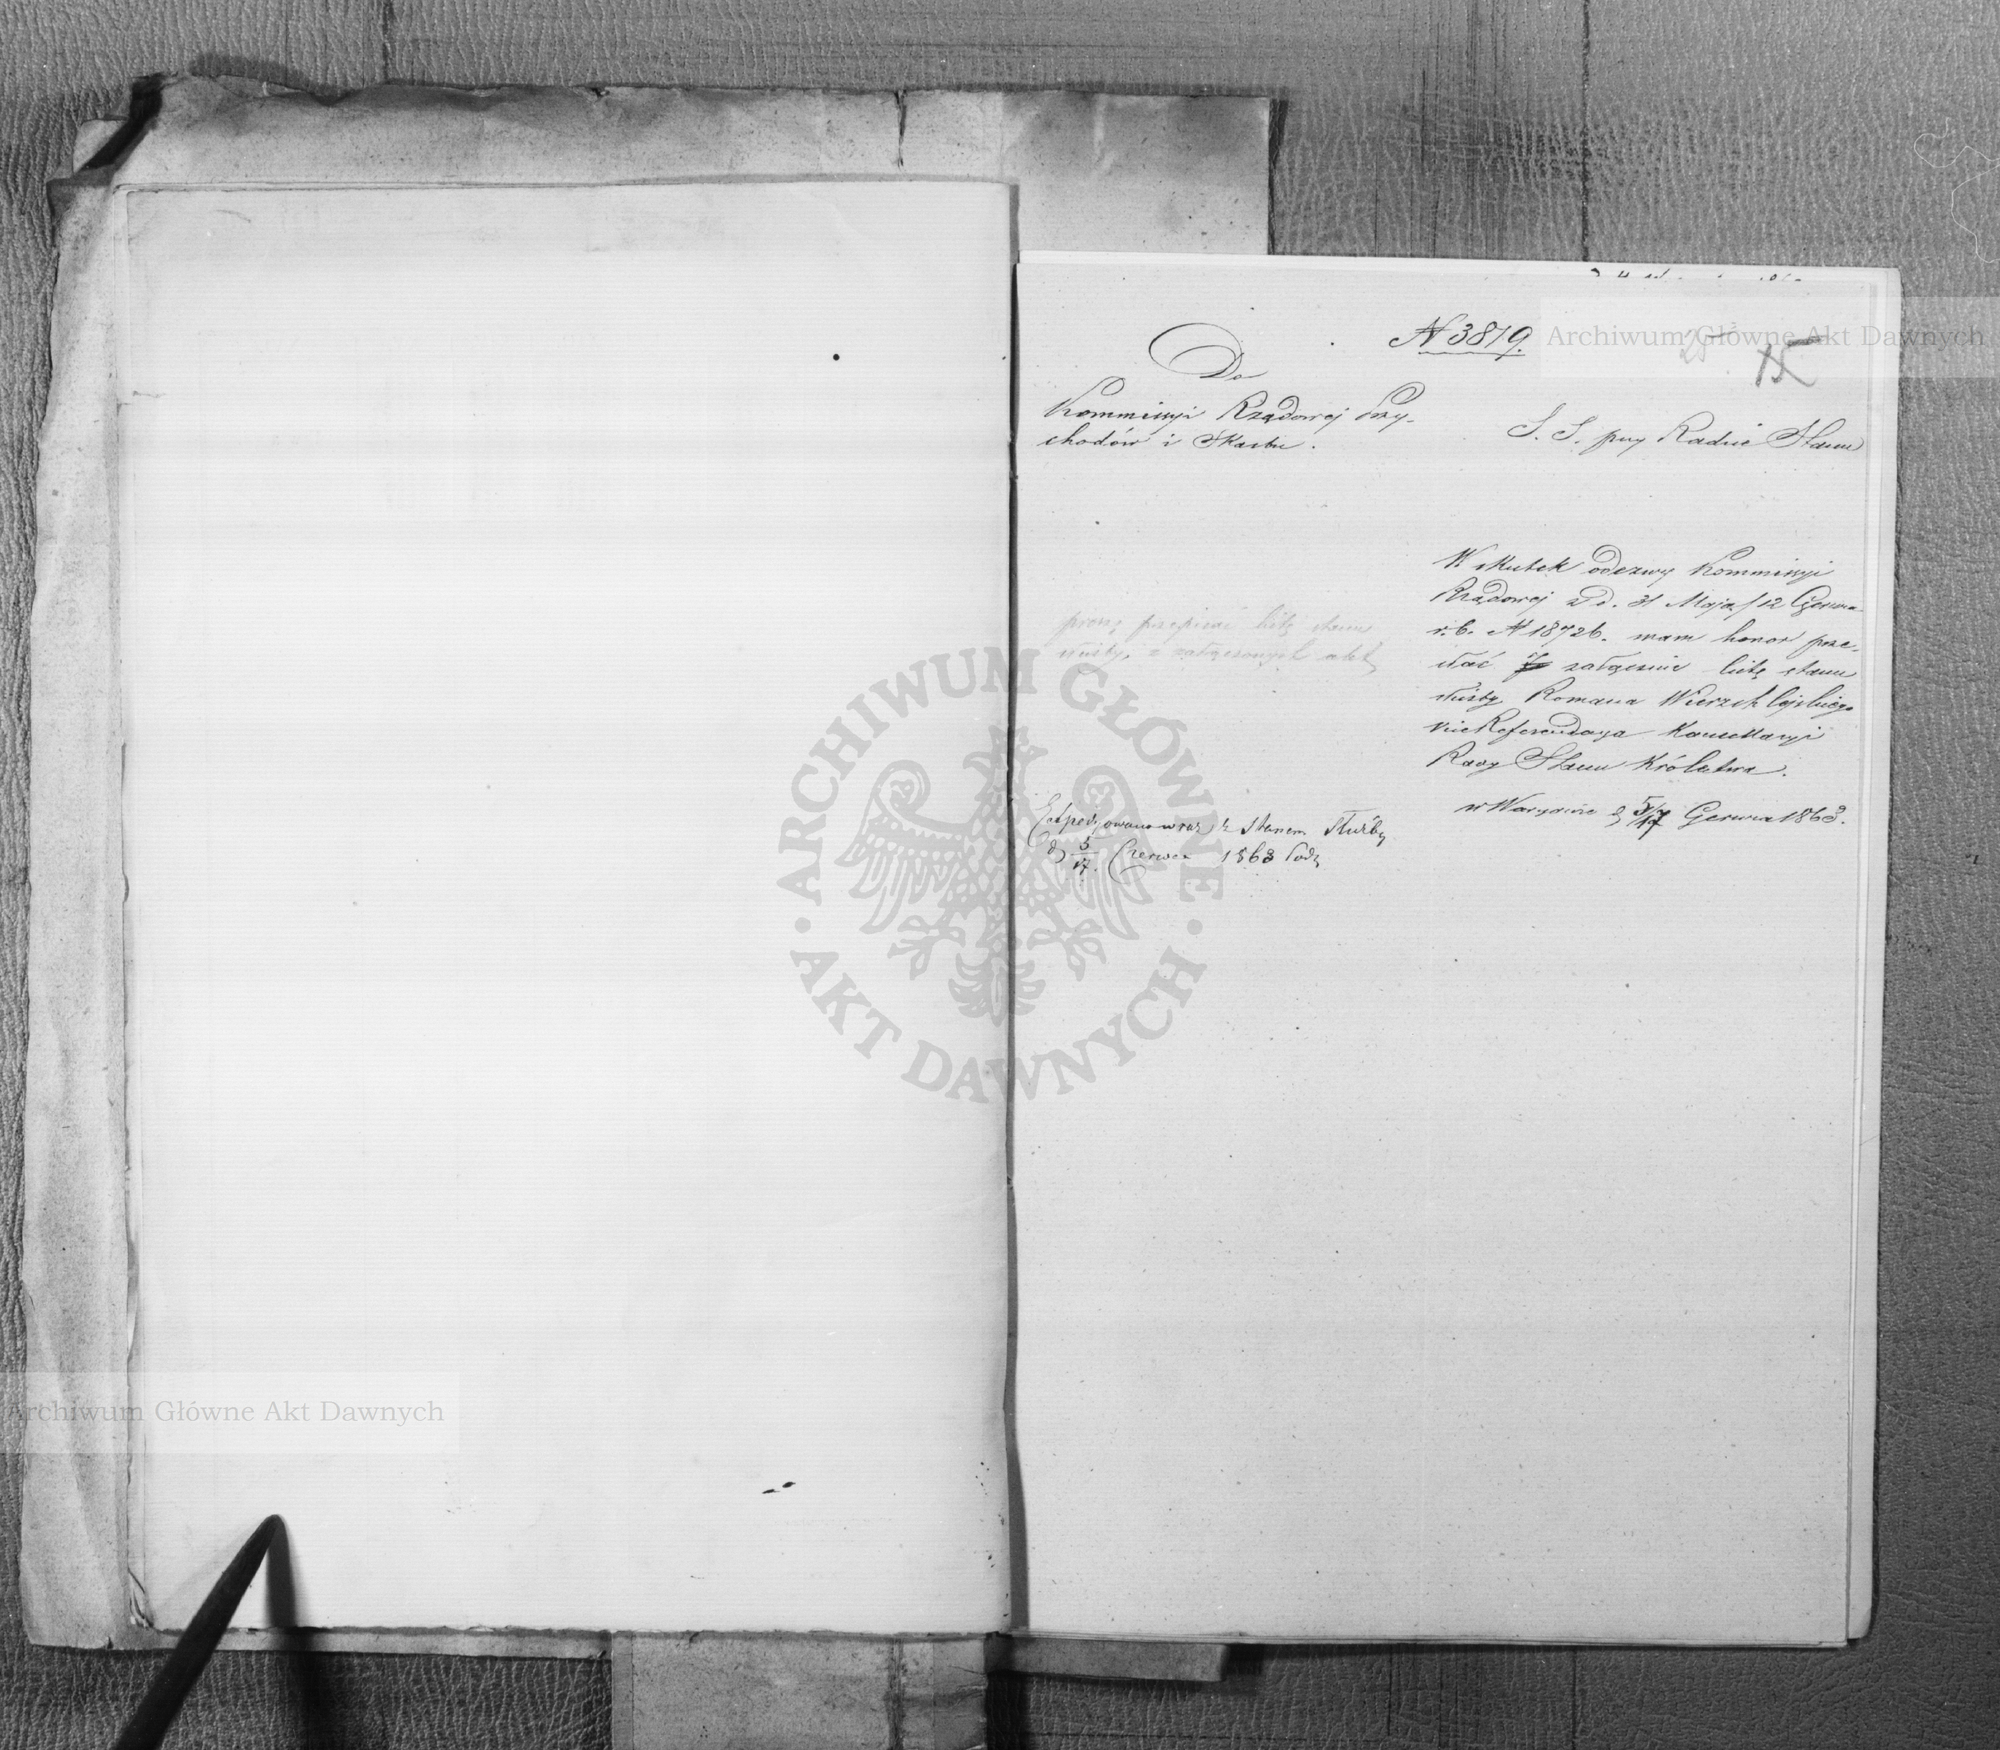 N 3819.
Archiwum Główne Akt Dawnych
15
Do
Kommissyi Rządowej Przy-
chodów i Skarbu.
S. S. przy Radzie Stanu
W skutek odezwy Kommissyi
Rządowej z d. 31 Maja/12 Czerwca
r. b. N 18726. mam honor prze-
słać załącznie listę stanu
służby Romana Wierzchlejskiego
vice Referendarza Kancellaryi
Rady Stanu Królestwa.
w Warszawie d 5/17 Czerwca 1863.
proszę przepisać listę stanu
służby, z załączonych akt
Expedyowano wraz z Stanem Służby
d 5/17. Czerwca 1863 
ARCHIWUM GŁÓWNE
AKT DAWNYCH
Archiwum Główne Akt Dawnych